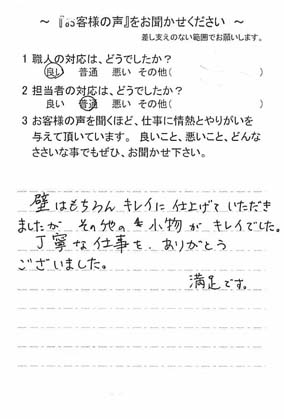 ～『お客様の声』をお聞かせください～
差し支えのない範囲でお願いします。
1 職人の対応は、どうでしたか？
良い 普通 悪い その他( )
2 担当者の対応は、どうでしたか？
良い 普通 悪い その他( )
3 お客様の声を聞くほど、仕事に情熱とやりがいを
与えて頂いています。良いこと、悪いこと、どんな
ささいな事でもぜひ、お聞かせ下さい。
壁はもちろん キレイに仕上げていただき
ましたが その他の 小物が キレイでした。
丁寧な仕事を、ありがとう
ございました。
満足です。